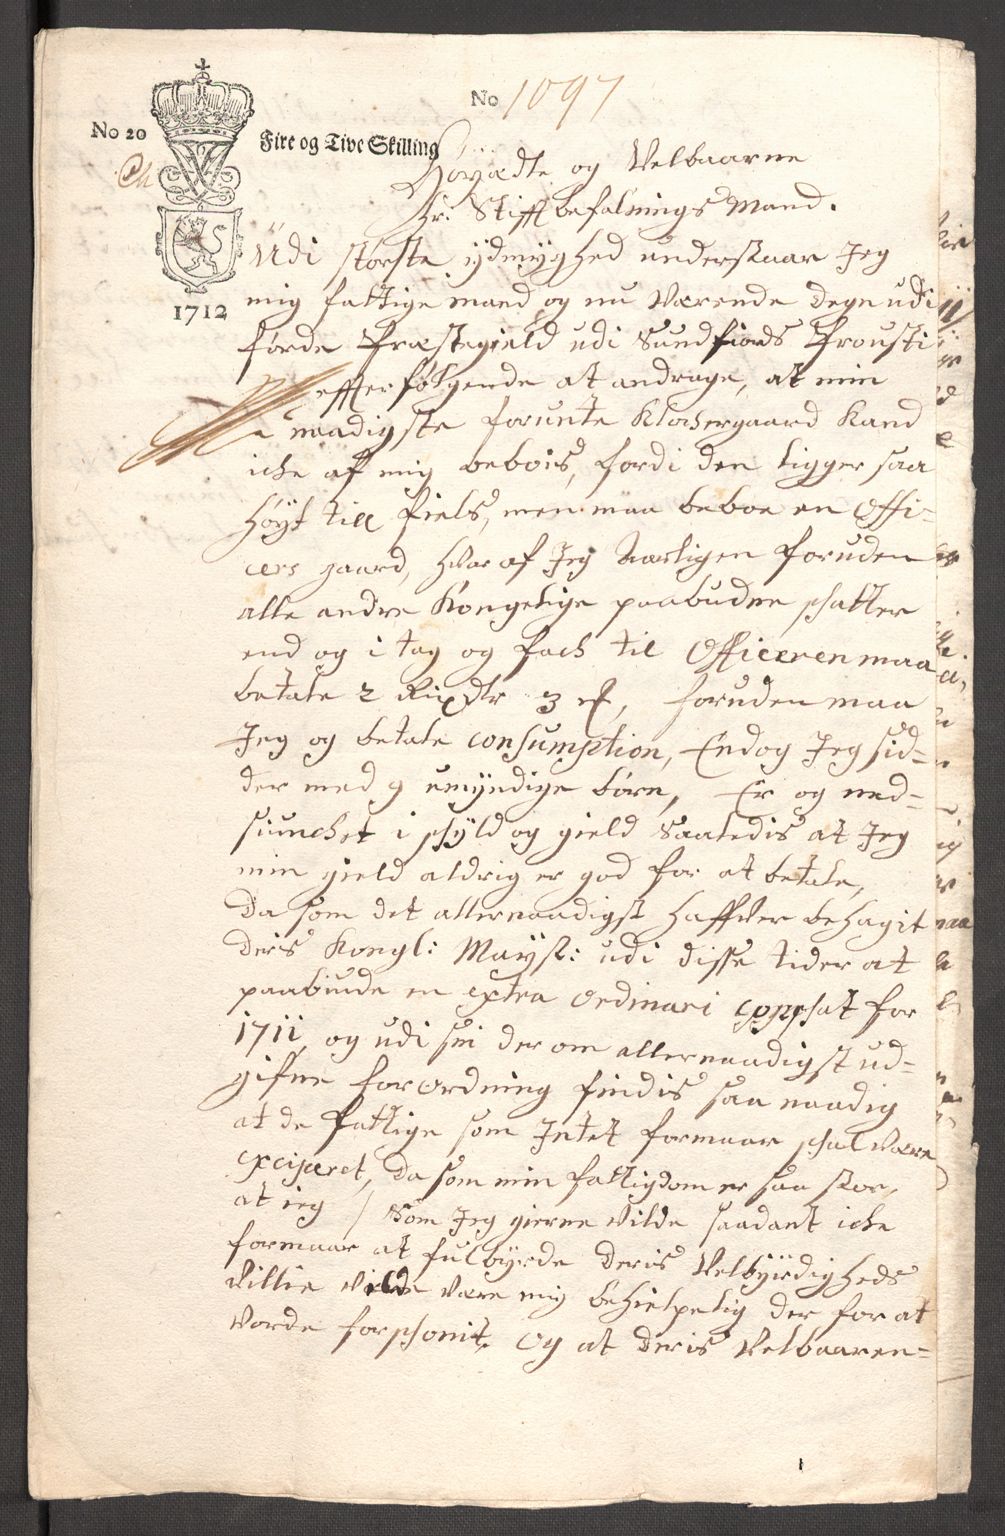 No 1097
No 20
Fire og Tive Skilling
1712
Høyædte og Velbaarne
Hr: Stiftbefalnings Mand.
Udi største ydmyghed understaar Jeg
mig fattige mand og nu værende degn udi
førde Præstegield udi Sundfiords Frousti
effterfølgende at andrage, at min
naadigste forunte Klochergaard Kand
iche af mig bebois, fordi den ligger saa
Høyt till Fields, men maa beboe en Offi-
cers gaard, hvor af Jeg Aarligen foruden
alle andre Kongelige paabudne schatter
end og i tag og fach til Officeren maa
betale 2 Rixdr 3 ort, foruden maa
Jeg og betale Consumption, Endog Jeg sid-
der med 9 umyndige børn, Er og ned-
siunchet i schyld og gield Saaledis at Jeg
min gield aldrig er god for at betale,
Da som det allernaadigst haffver behagit
deris Kongl: Mayst: udi disse tider at
paabiude en extra Ordinari Coppschat for
1711, og udi sin der om allernaadigst ud-
gifne forordning findis saa naadig
at de fattige som Intet formaar schal være
exciperet, Da som min fattigdom er saa stor,
at ieg / som Jeg gierne vilde saadant iche
formaar at fulbyrde Deris Velbyrdigheds
Villie vilde være mig behielpelig der for at
vorde forschonit. Og at deris Velbaaren-